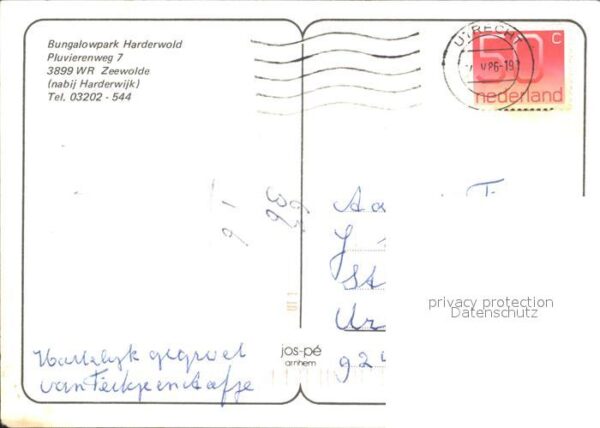 Bungalowpark Harderwold
Pluvierenweg 7
3899 WR Zeewolde
(nabij Harderwijk)
Tel. 03202 - 544
UTRECHT
86-19
50 C
nederland
Aa
J
St
Ur
924
privacy protection
Datenschutz
jos-pé
arnhem
Hartelijk gegroet
van